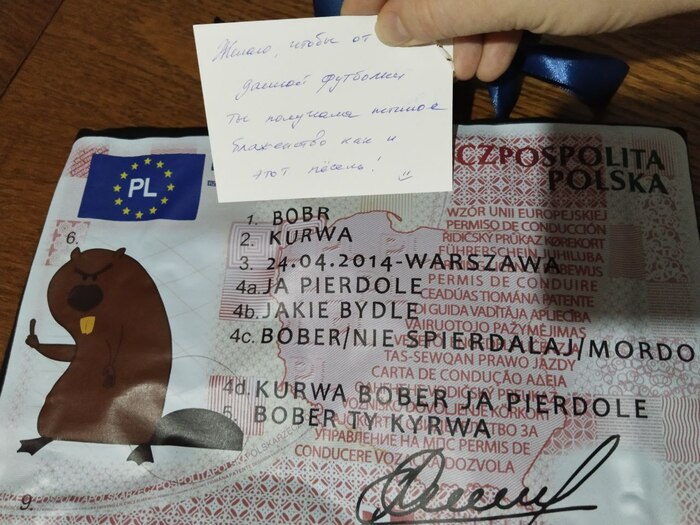 Желаю, чтобы от
данной футболки
ты получала истиное
блаженство как и
этот пёсель!
PL
CZPOSPOLITA
POLSKA
WZÓR UNII EUROPEJSKIEJ
PERMISO DE CONDUCCIÓN
ŘIDIČSKÝ PRŮKAZ KØREKORT
FÜHRERSCHEIN JUHILUBA
PERMIS DE CONDUIRE
CEADÚAS TIOMÁNA PATENTE
DI GUIDA VADĪTĀJA APLIECĪBA
VAIRUOTOJO PAŽYMĖJIMAS
TAS-SEWQAN PRAWO JAZDY
CARTA DE CONDUÇÃO ΑΔΕΙΑ
УПРАВЛЕНИЕ НА МПС PERMIS DE
CONDUCERE
6.
1. BOBR
2. KURWA
3. 24.04.2014-WARSZAWA
4a. JA PIERDOLE
4b. JAKIE BYDLE
4c. BOBER/NIE SPIERDALAJ/MORDO
4d. KURWA BOBER JA PIERDOLE
5. BOBER TY KYRWA
9.